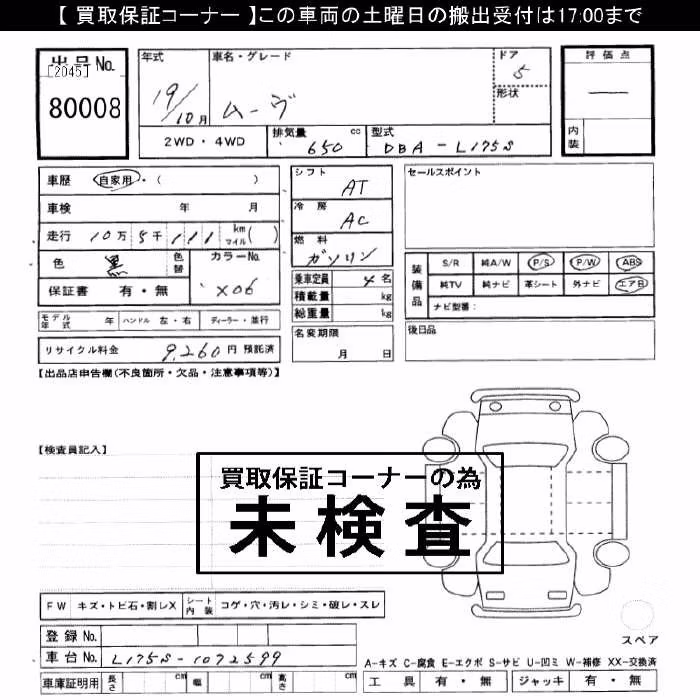 【 買取保証コーナー 】この車両の土曜日の搬出受付は17:00まで
出品No.
[2045]
80008
年式
19/10月
車名・グレード
ムーヴ
ドア
5
形状
評価点
内装
2WD・4WD
排気量 650 cc
型式 DBA-L175S
車歴 自家用・( )
車検 年 月
走行 10万5千111 km マイル( )
色 黒 色替 カラーNo. X06
保証書 有・無
シフト AT
冷房 AC
燃料 ガソリン
乗車定員 4名
積載量 kg
総重量 kg
名変期限
月 日
セールスポイント
装備品
S/R 純A/W P/S P/W ABS
純TV 純ナビ 革シート 外ナビ エアB
ナビ型番:
後日品
モデル年式 年 ハンドル 左・右 ディーラー・並行
リサイクル料金 9,260円 預託済
【出品店申告欄(不良箇所・欠品・注意事項等)】
【検査員記入】
買取保証コーナーの為
未検査
FW キズ・トビ石・割レX シート内装 コゲ・穴・汚レ・シミ・破レ・スレ
スペア
登録No.
車台No. L175S-1072599
A-キズ C-腐食 E-エクボ S-サビ U-凹ミ W-補修 XX-交換済
車庫証明用 長さ cm 幅 cm 高さ cm
工具 有・無 ジャッキ 有・無